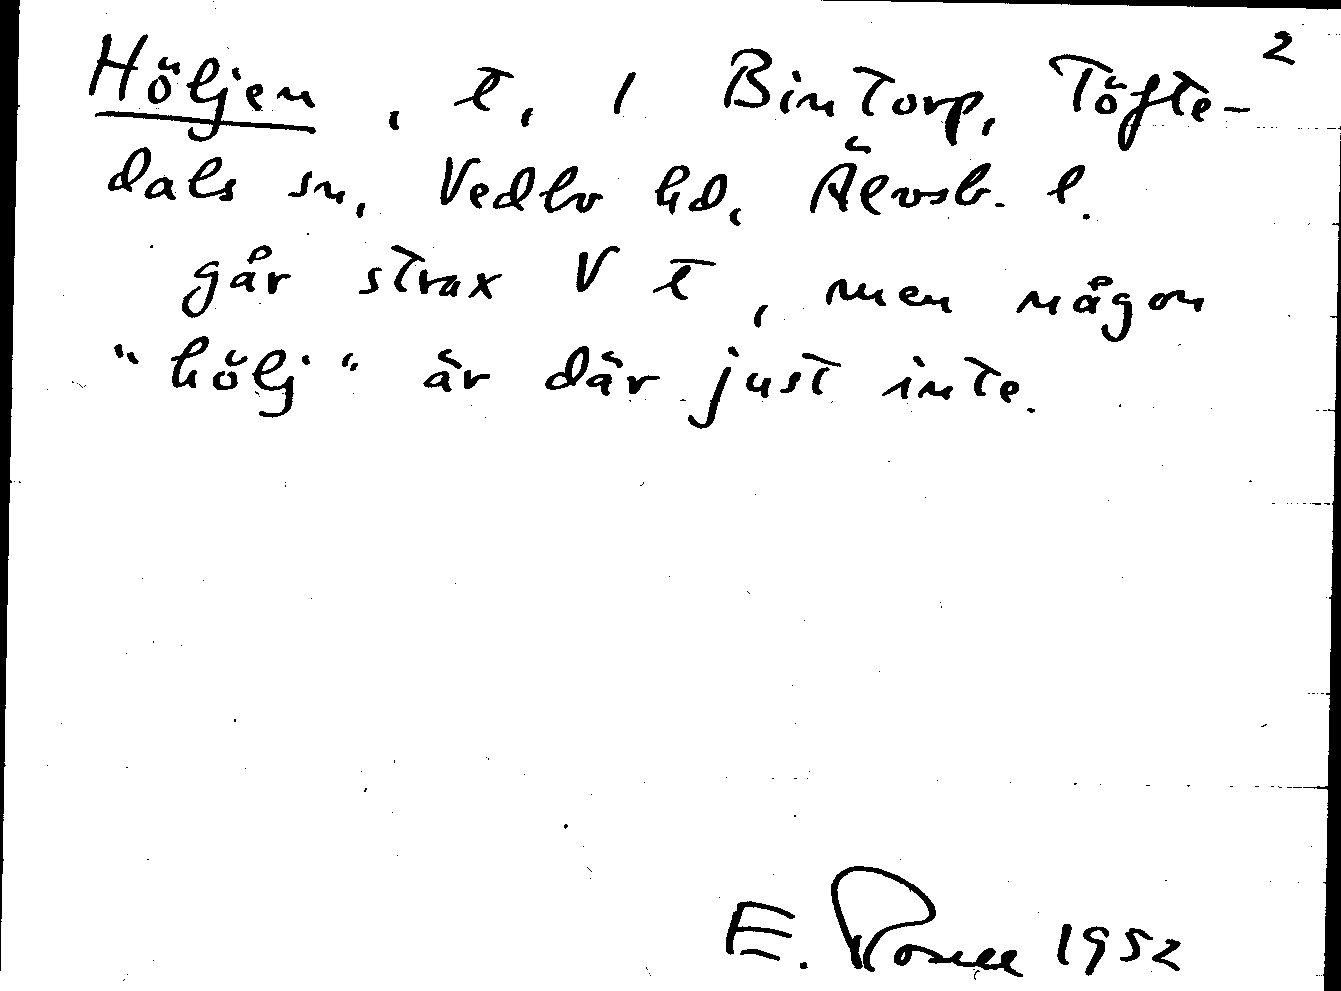 2
Höljen, t, 1 Bintorp, Töfte-
dals sn, Vedbo hd, Älvsb. l.
går strax V t, men någon
"hölj" är där just inte.
E. Rosell 1952